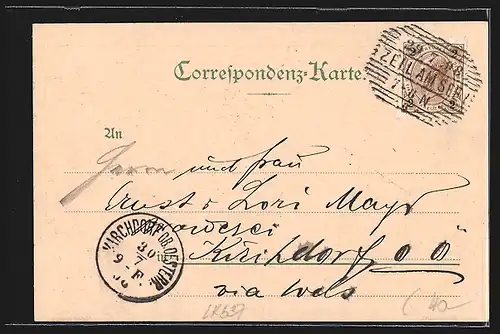 Correspondenz-Karte
ZELL AM SEE
7-8 N
An
Herrn und Frau
Ernst u Lori Mayr
Kirchdorf O Ö
via Wels
KIRCHDORF OB. OESTERR.
30
7
9-F.